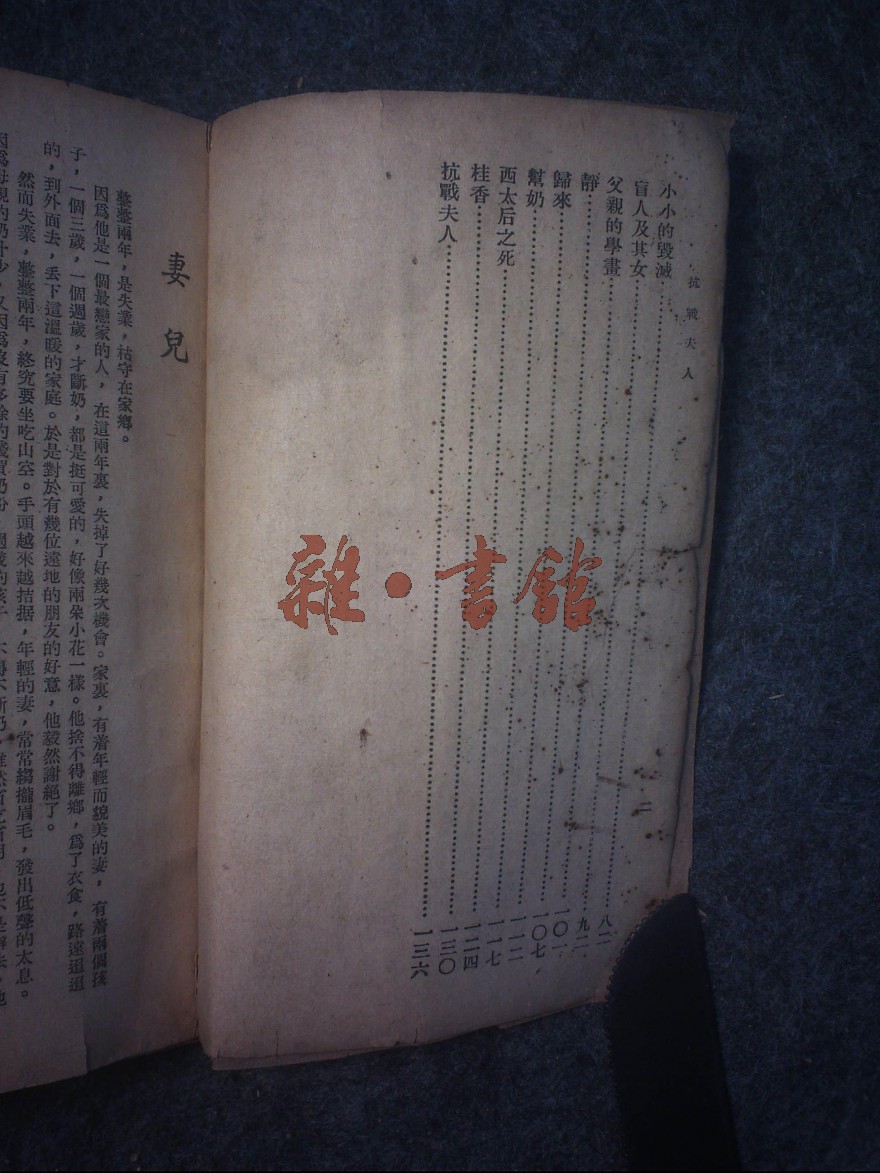 抗戰夫人
小小的毀滅……
盲人及其女……
父親的學畫……一〇一
靜……一〇七
歸來……一一二
幫奶……一一七
西太后之死……一二四
桂香……一三〇
抗戰夫人……一三六
二
妻兒
整整兩年,是失業,枯守在家鄉。
因爲他是一個最戀家的人,在這兩年裏,失掉了好幾次機會。家裏,有着年輕而貌美的妻,有着兩個孩
子,一個三歲,一個週歲,才斷奶,都是挺可愛的,好像兩朶小花一樣。他捨不得離鄉,爲了衣食,路遠迢迢
的,到外面去,丟下這溫暖的家庭。於是對於有幾位遠地的朋友的好意,他毅然謝絕了。
然而失業,整整兩年,終究要坐吃山空。手頭越來越拮据,年輕的妻,常常縐攏眉毛,發出低聲的太息。
因爲母親的奶汁少,又因爲沒有多餘的錢買奶粉
雜•書館